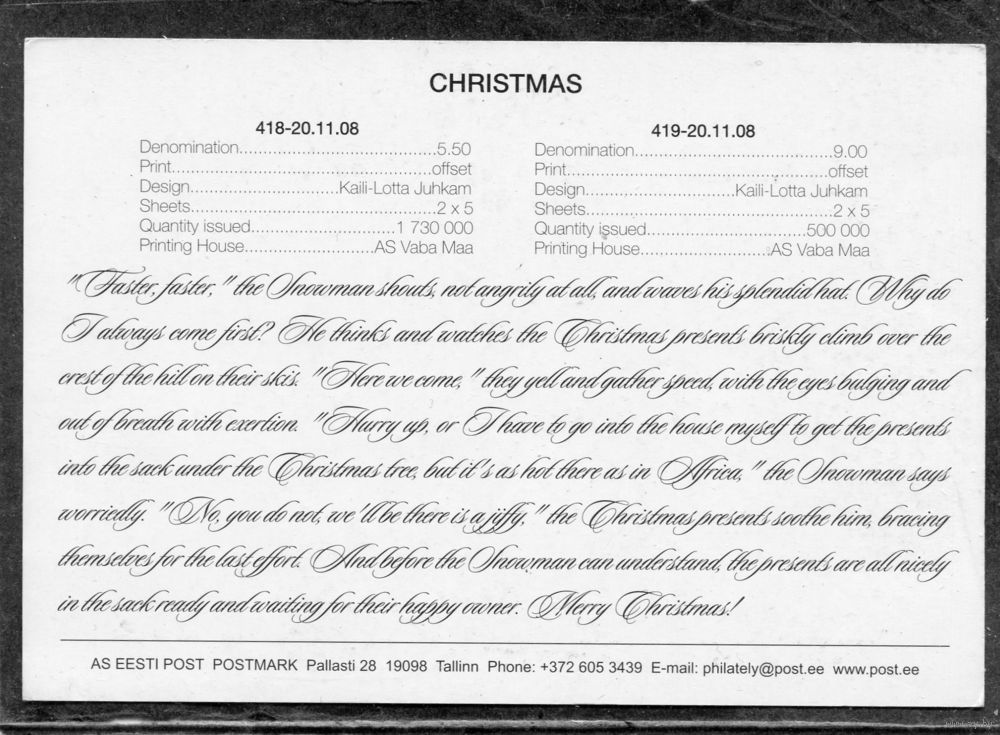 CHRISTMAS
418-20.11.08
Denomination..........................................5.50
Print......................................................offset
Design..............................Kaili-Lotta Juhkam
Sheets..................................................2 x 5
Quantity issued.............................1 730 000
Printing House..........................AS Vaba Maa
419-20.11.08
Denomination..........................................9.00
Print......................................................offset
Design..............................Kaili-Lotta Juhkam
Sheets..................................................2 x 5
Quantity issued......................................500 000
Printing House..........................AS Vaba Maa
"Faster, faster," the Snowman shouts, not angrily at all, and waves his splendid hat. Why do
I always come first? He thinks and watches the Christmas presents briskly climb over the
crest of the hill on their skis. "Here we come," they yell and gather speed, with the eyes bulging and
out of breath with exertion. "Hurry up, or I have to go into the house myself to get the presents
into the sack under the Christmas tree, but it's as hot there as in Africa," the Snowman says
worriedly. "No, you do not, we'll be there is a jiffy," the Christmas presents soothe him, bracing
themselves for the last effort. And before the Snowman can understand, the presents are all nicely
in the sack ready and waiting for their happy owner. Merry Christmas!
AS EESTI POST POSTMARK Pallasti 28 19098 Tallinn Phone: +372 605 3439 E-mail: philately@post.ee www.post.ee